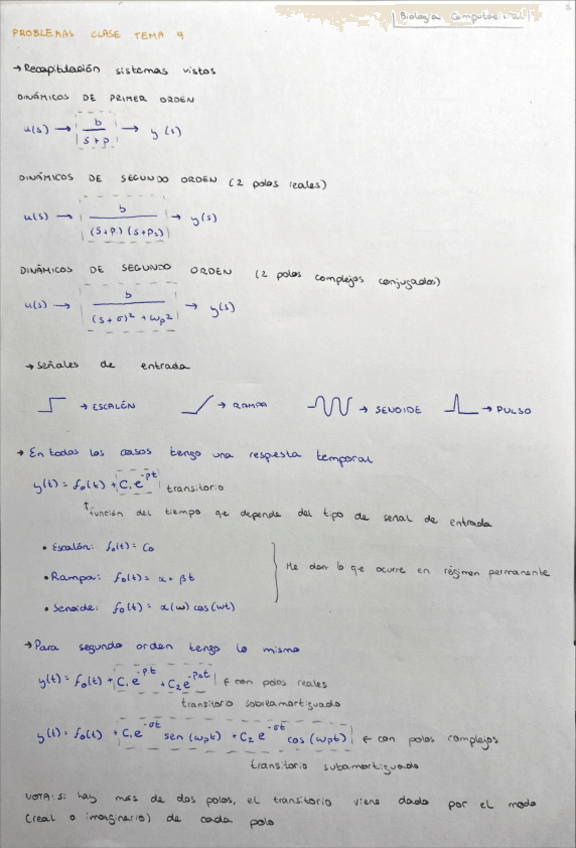 Biología Computacional
PROBLEMAS CLASE TEMA 9
→ Recapitulación sistemas vistos
DINÁMICOS DE PRIMER ORDEN
u(s) → b / (s + p) → y(s)
DINÁMICOS DE SEGUNDO ORDEN (2 polos reales)
u(s) → b / ((s+p)(s+p₂)) → y(s)
DINÁMICOS DE SEGUNDO ORDEN (2 polos complejos conjugados)
u(s) → b / ((s+σ)² + ωp²) → y(s)
→ Señales de entrada
→ ESCALÓN → RAMPA → SENOIDE → PULSO
→ En todos los casos tengo una respesta temporal
y(t) = f₀(t) + C₁e^-pt transitorio
↑ función del tiempo qe depende del tipo de senal de entrada
• Escalón: f₀(t) = C₀
• Rampa: f₀(t) = α + βt
• Senoide: f₀(t) = α(ω) cos(ωt)
Me dan lo qe ocurre en régimen permanente
→ Para segundo orden tengo lo mismo
y(t) = f₀(t) + C₁e^-pt + C₂e^-p₂t ← con polos reales
transitorio sobreamortiguado
y(t) = f₀(t) + C₁e^-σt sen(ωpt) + C₂e^-σt cos(ωpt) ← con polos complejos
transitorio subamortiguado
NOTA: Si hay más de dos polos, el transitorio viene dado por el modo
(real o imaginario) de cada polo